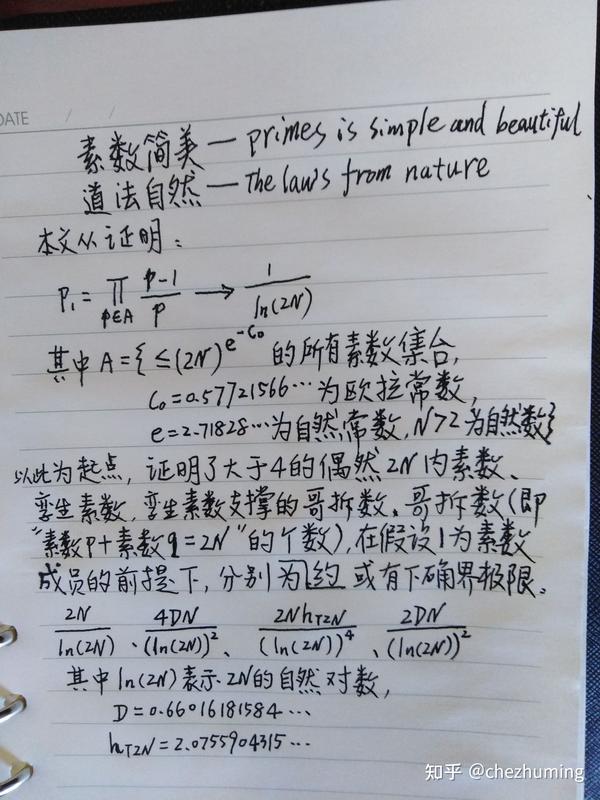 DATE / /
素数简美 — primes is simple and beautiful
道法自然 — The laws from nature
本文从证明:
P₁ = ∏_{p∈A} (p-1)/p → 1/ln(2N)
其中 A={ ≤(2N)^{e^{-C₀}} 的所有素数集合,
C₀=0.57721566…为欧拉常数,
e=2.71828…为自然常数, N>2为自然数}
以此为起点, 证明了大于4的偶然2N内素数、
孪生素数, 孪生素数支撑的哥拆数、哥拆数(即
"素数p+素数q=2N"的个数), 在假设1为素数
成员的前提下, 分别为约或有下确界极限。
2N/ln(2N)、4DN/(ln(2N))²、2Nh_{T2N}/(ln(2N))⁴、2DN/(ln(2N))²
其中ln(2N)表示2N的自然对数,
D=0.66016181584…
h_{T2N}=2.0755904315…
知乎 @chezhuming